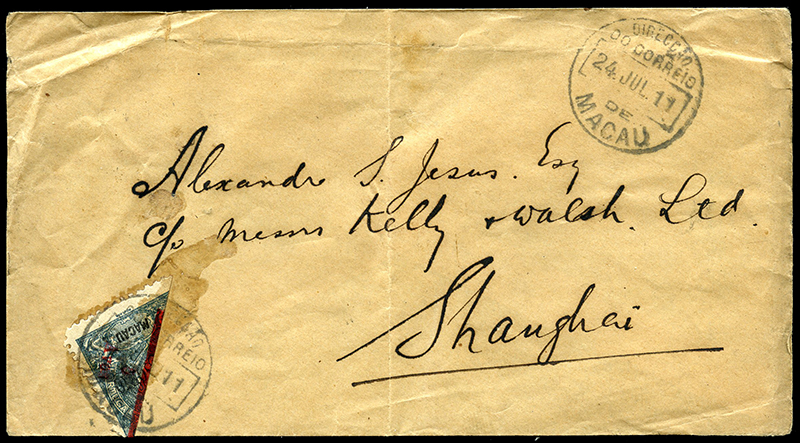 DIRECÇÃO
DO CORREIO
24. JUL. 11
DE
MACAU
Alexandre S. Jesus. Esq
c/o Messrs Kelly & Walsh. Ltd.
Shanghai
MACAU